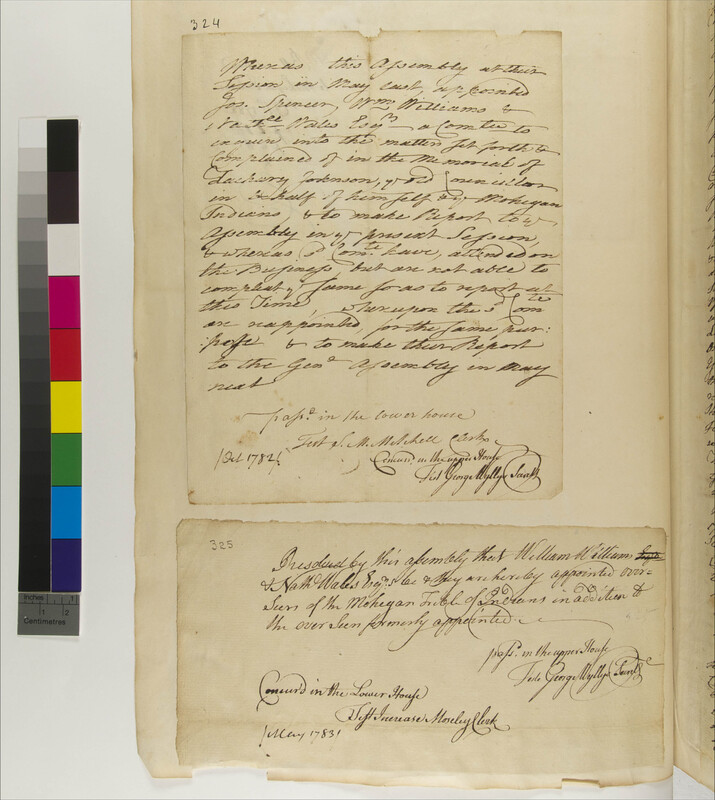 324
Whereas this Assembly at their
Session in May last, appointed
Jos. Spencer, Wm Williams &
Nathel Wales Esqrs a Comtee to
enquire into the matters set forth &
Complained of in the Memorial of
Zachary Johnson, ye old Councillor
in behalf of himself & ye Mohegan
Indians, & to make Report to ye
Assembly in ye present Session,
& whereas sd Comte have, attended on
the Business, but are not able to
compleat ye same so as to report at
this Time, whereupon the sd Comte
are reappointed for the same pur:
pose & to make their Report
to the Genl Assembly in May
next
passd in the lower house
Test S. M. Mitchell Clerk
[Oct 1782]
Concurd in the upper House
Test George Wyllys Secrety
325
Resolved by this assembly that William Williams
& Nath Wales Esqrs be & they are hereby appointed over-
seers of the Mohegan Tribe of Indians in addition to
the overseers formerly appointed
passd in the upper House
Teste George Wyllys Secret
Concur'd in the Lower House
Test Increase Moseley Clerk
[May 1783]
inches
1
2
Centimetres